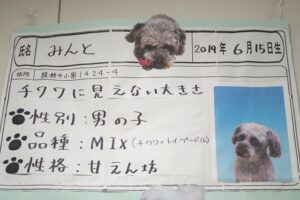 氏名 みんと 2019年6月15日生
住所 中小国1424-4
チワワに見えない大きさ
性別：男の子
品種：MIX(チワワ×トイプードル)
性格：甘えん坊